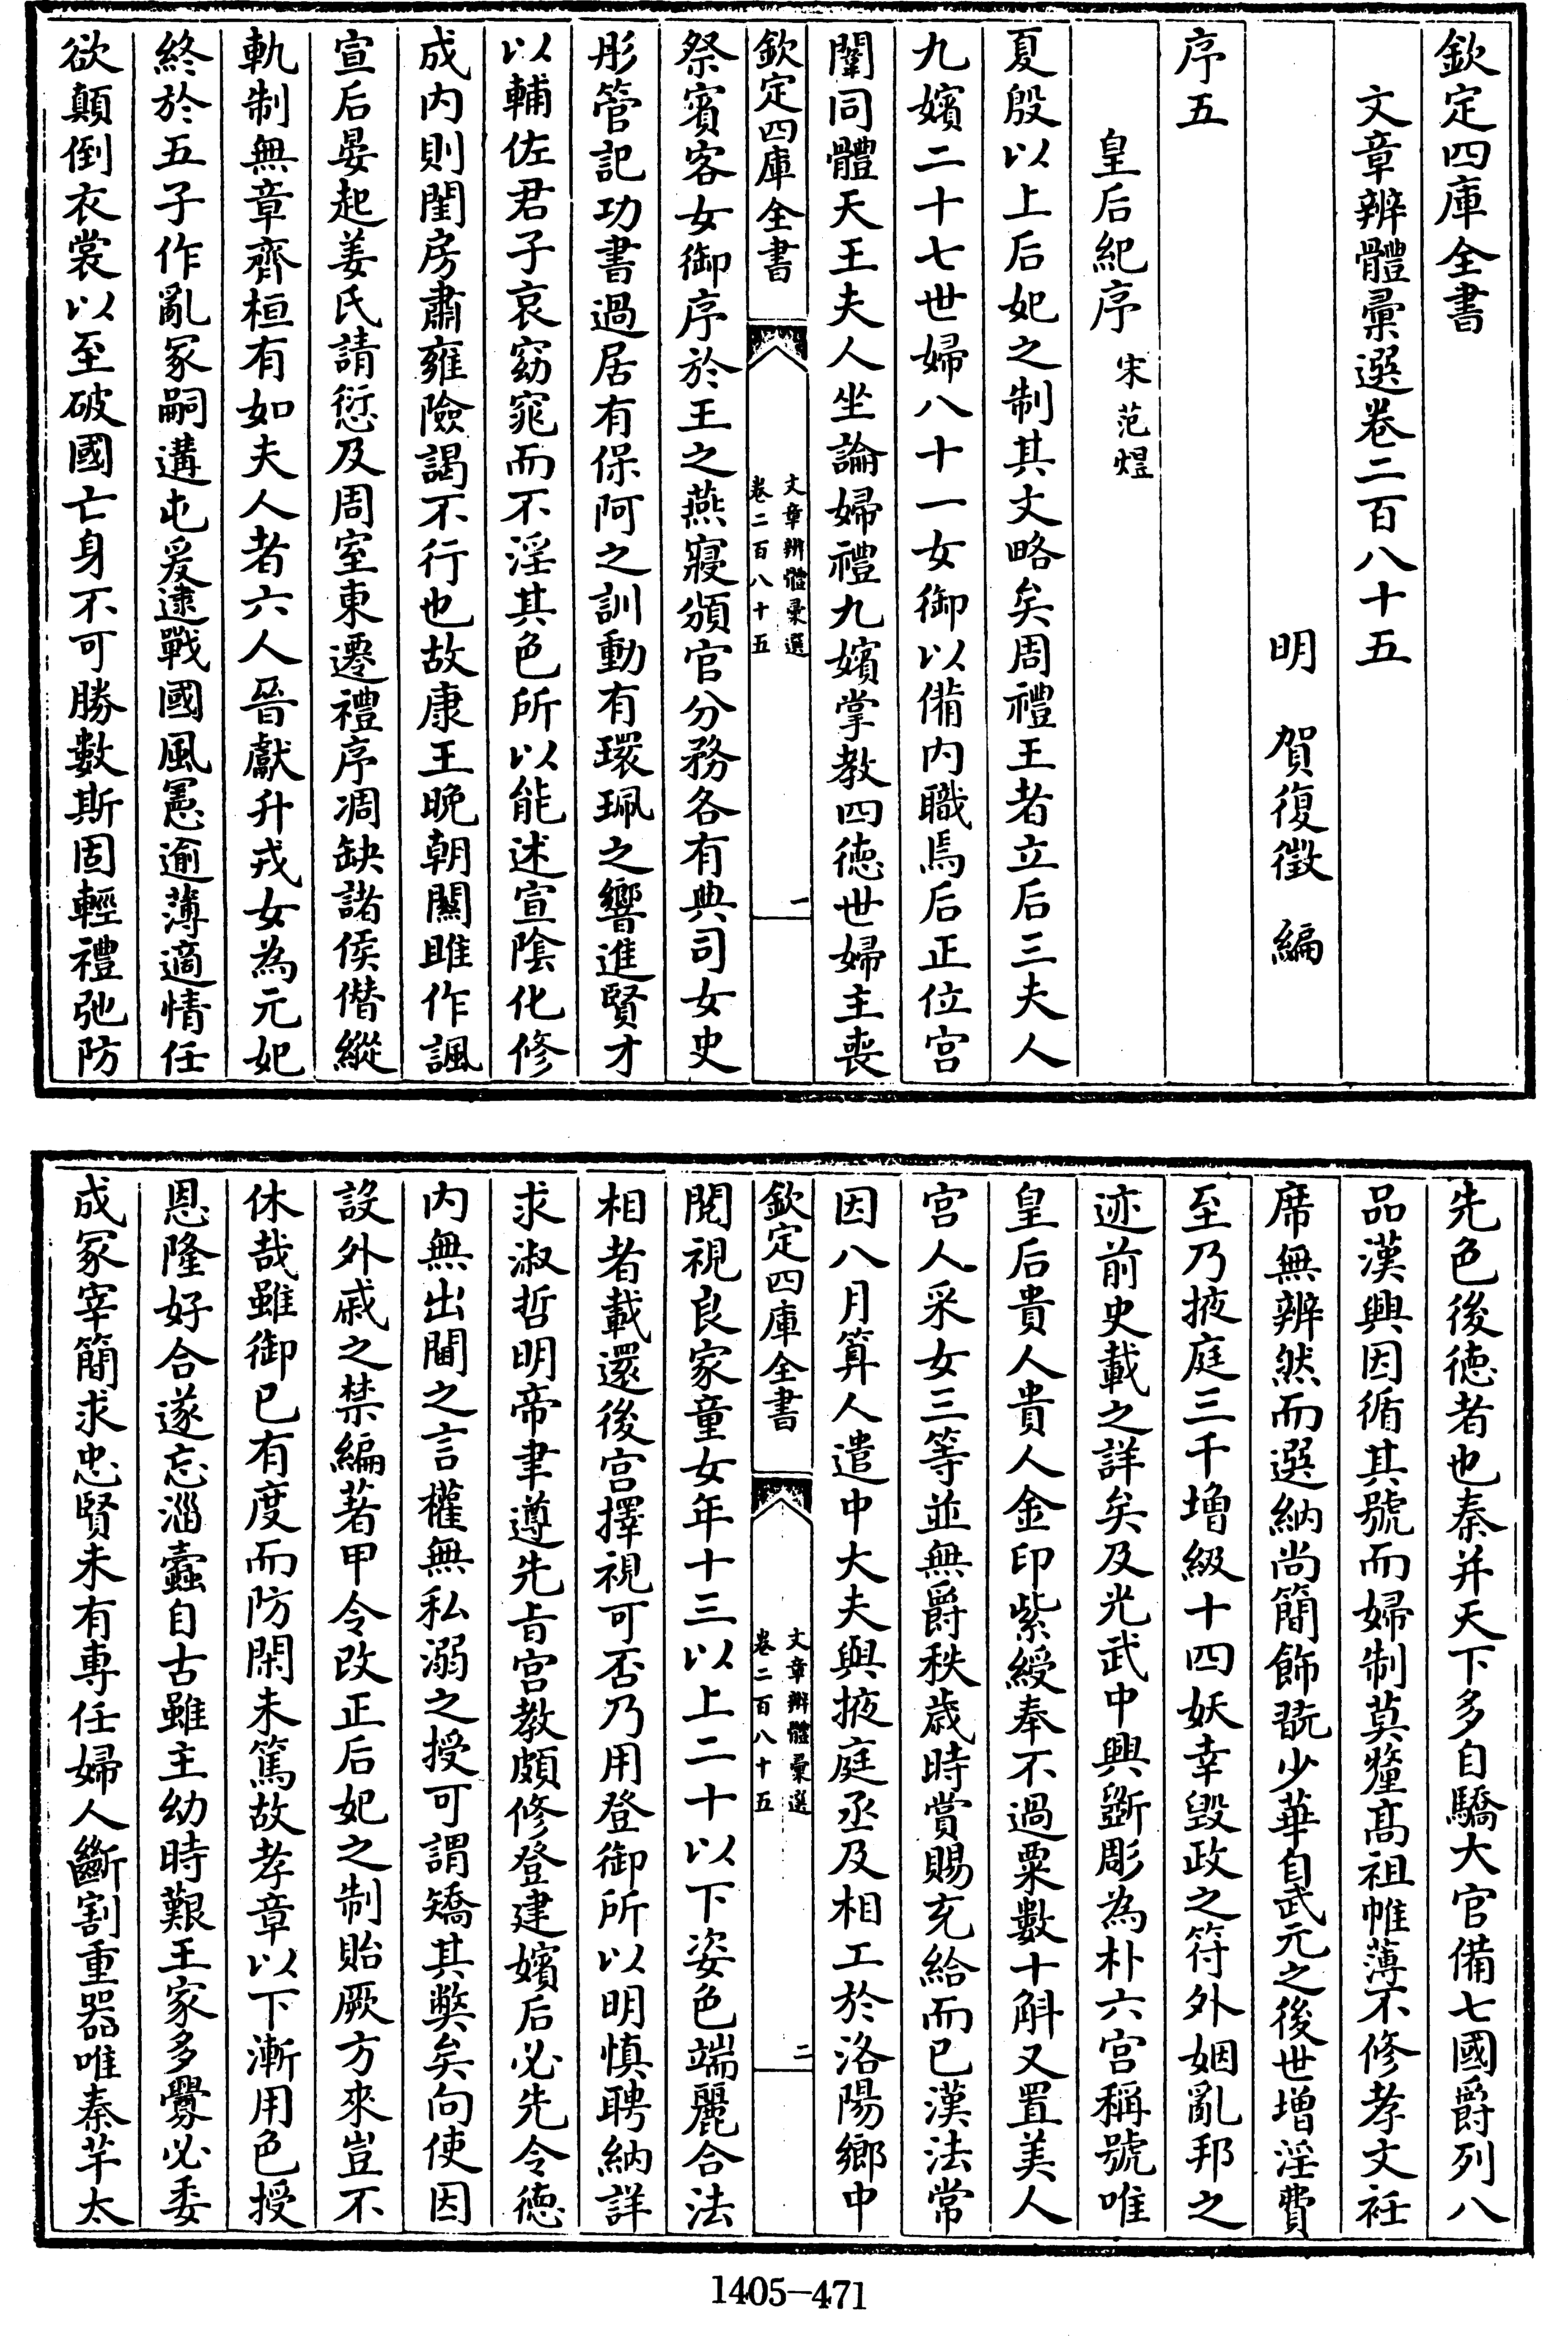 欽定四庫全書
文章辨體彙選卷二百八十五
明 賀復徵 編
序五
皇后紀序 宋范煜
夏殷以上后妃之制其文略矣周禮王者立后三夫人
九嬪二十七世婦八十一女御以備内職焉后正位宮
闈同體天王夫人坐論婦禮九嬪掌教四徳世婦主喪
欽定四庫全書
文章辨體彙選
卷二百八十五
一
祭賓客女御序於王之燕寢頒官分務各有典司女史
彤管記功書過居有保阿之訓動有環珮之響進賢才
以輔佐君子哀窈窕而不淫其色所以能述宣陰化修
成内則閨房肅雍險謁不行也故康王晚朝關雎作諷
宣后晏起姜氏請愆及周室東遷禮序凋缺諸侯僭縱
軌制無章齊桓有如夫人者六人晉獻升戎女為元妃
終於五子作亂冢嗣遘屯爰逮戰國風憲逾薄適情任
欲顛倒衣裳以至破國亡身不可勝數斯固輕禮弛防
先色後徳者也秦并天下多自驕大官備七國爵列八
品漢興因循其號而婦制莫釐髙祖帷薄不修孝文衽
席無辨然而選納尚簡飾翫少華自武元之後世增淫費
至乃掖庭三千增級十四妖幸毁政之符外姻亂邦之
迹前史載之詳矣及光武中興斵彫為朴六宮稱號唯
皇后貴人貴人金印紫綬奉不過粟數十斛又置美人
宮人采女三等並無爵秩歳時賞賜充給而已漢法常
因八月筭人遣中大夫與掖庭丞及相工於洛陽鄉中
欽定四庫全書
文章辨體彙選
卷二百八十五
二
閱視良家童女年十三以上二十以下姿色端麗合法
相者載還後宮擇視可否乃用登御所以明慎聘納詳
求淑哲明帝聿遵先㫖宮教頗修登建嬪后必先令徳
内無出閫之言權無私溺之授可謂矯其𡚁矣向使因
設外戚之禁編著甲令改正后妃之制貽厥方來豈不
休哉雖御已有度而防閑未篤故孝章以下漸用色授
恩隆好合遂忘淄蠧自古雖主幼時艱王家多釁必委
成冢宰簡求忠賢未有専任婦人斷割重器唯秦芊太
1405-471